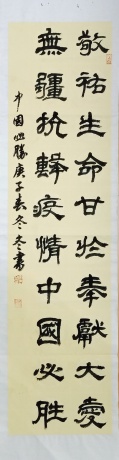 敬祐生命甘於奉獻大愛
無疆抗擊疫情中國必胜
中国必勝庚子春冬冬書